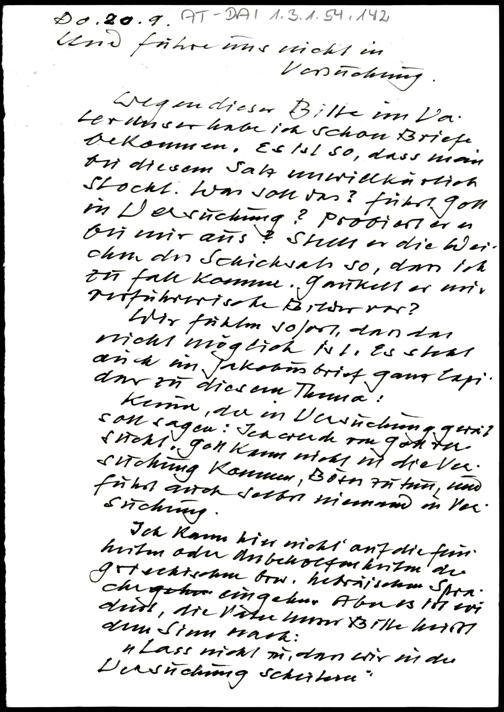 Do. 20. 9. AT-DAI 1.3.1.54.142
Und führe uns nicht in
Versuchung.
Wegen dieser Bitte im Va-
terunser habe ich schon Briefe
bekommen. Es ist so, dass man
bei diesem Satz unwillkürlich
stockt. Was soll das? Führt Gott
in Versuchung? Probiert er es
bei mir aus? Stellt er die Wei-
chen des Schicksals so, dass ich
zu Fall komme. Gaukelt er mir
verführerische Bilder vor?
Wir fühlen sofort, dass das
nicht möglich ist. Es steht
auch im Jakobusbrief ganz lapi-
dar zu diesem Thema:
Keiner, der in Versuchung gerät
soll sagen: Ich werde von Gott ver
sucht. Gott kann nicht in die Ver-
suchung kommen, Böses zu tun, und
führt auch selbst niemand in Ver-
suchung.
Ich kann hier nicht auf die Fein
heiten oder Unbeholfenheiten der
griechischen bzw. hebräischen Spra-
che eingehen. Aber es ist
dass, die Bitte heisst
dem Sinn nach:
"Lass nicht zu, dass wir in der
Versuchung scheitern"